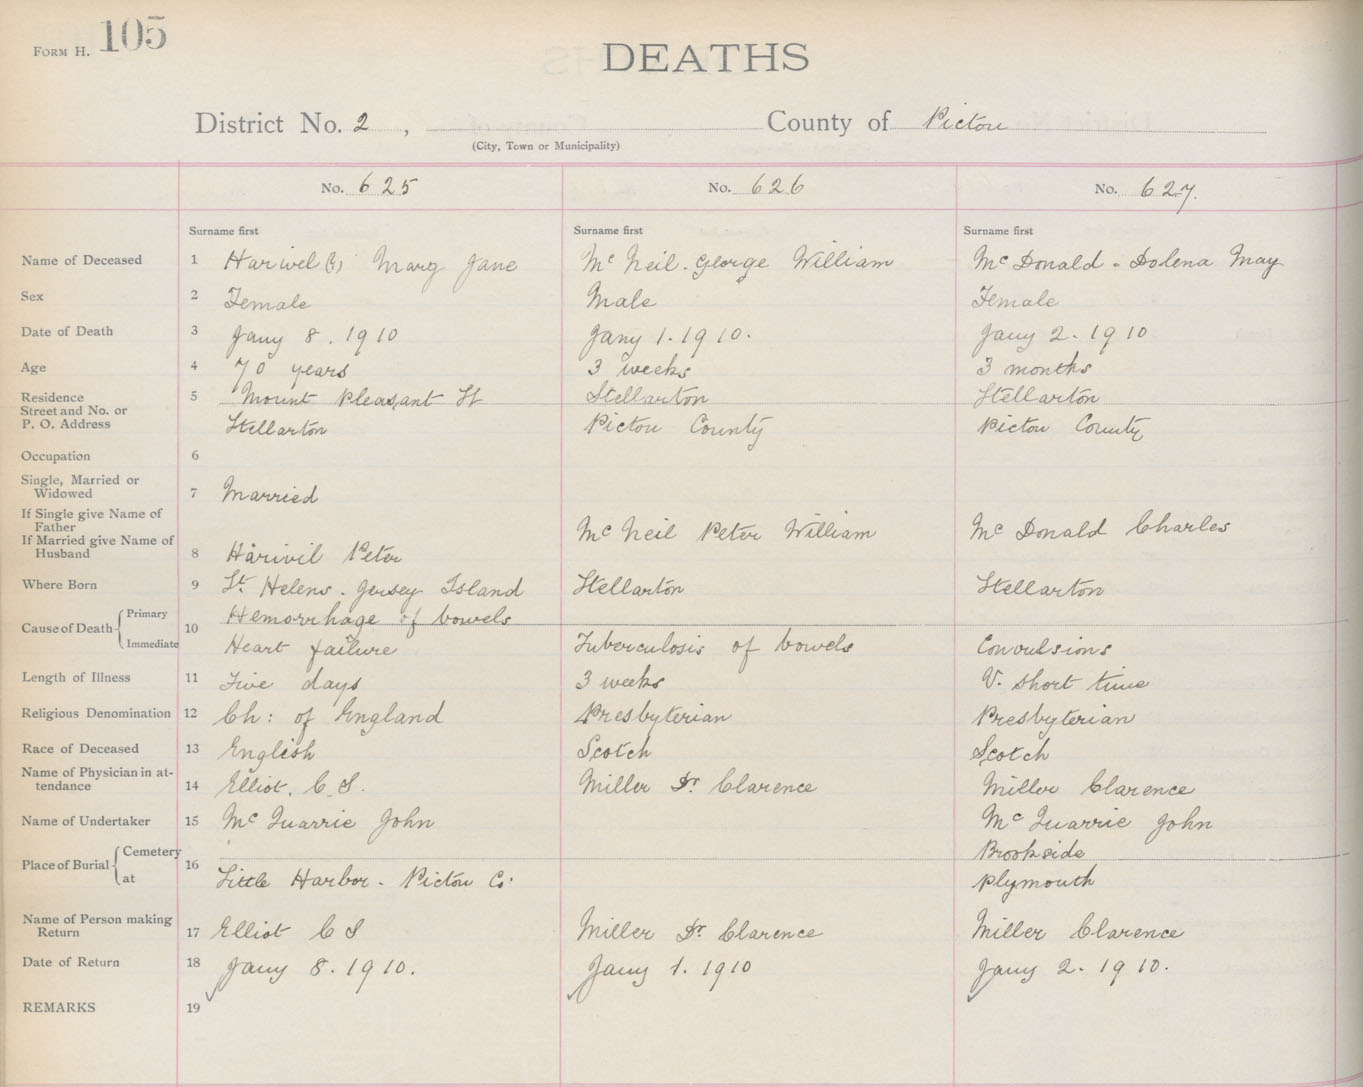 FORM H. 105
DEATHS
District No. 2 , County of Pictou
(City, Town or Municipality)
No. 625 No. 626 No. 627
Surname first Surname first Surname first
Name of Deceased 1 Harivel (?) Mary Jane Mc Neil. George William Mc Donald - Dolena May
Sex 2 Female Male Female
Date of Death 3 Jany 8. 1910 Jany 1. 1910. Jany 2. 1910
Age 4 70 years 3 weeks 3 months
Residence 5 Mount Pleasant St Stellarton Stellarton
Street and No. or
P. O. Address Stellarton Pictou County Pictou County
Occupation 6
Single, Married or
Widowed 7 Married
If Single give Name of
Father Mc Neil Peter William Mc Donald Charles
If Married give Name of
Husband 8 Harivil Peter
Where Born 9 St. Helens. Jersey Island Stellarton Stellarton
Cause of Death Primary Hemorrhage of bowels
10 Immediate Heart failure Tuberculosis of bowels Convulsions
Length of Illness 11 Five days 3 weeks V. short time
Religious Denomination 12 Ch: of England Presbyterian Presbyterian
Race of Deceased 13 English Scotch Scotch
Name of Physician in at-
tendance 14 Elliot. C S. Miller Dr. Clarence Miller Clarence
Name of Undertaker 15 Mc Quarrie John Mc Quarrie John
Place of Burial Cemetery Brookside
16 at Little Harbor - Pictou Co. Plymouth
Name of Person making
Return 17 Elliot C S Miller Dr. Clarence Miller Clarence
Date of Return 18 Jany 8. 1910. Jany 1. 1910 Jany 2. 1910.
REMARKS 19